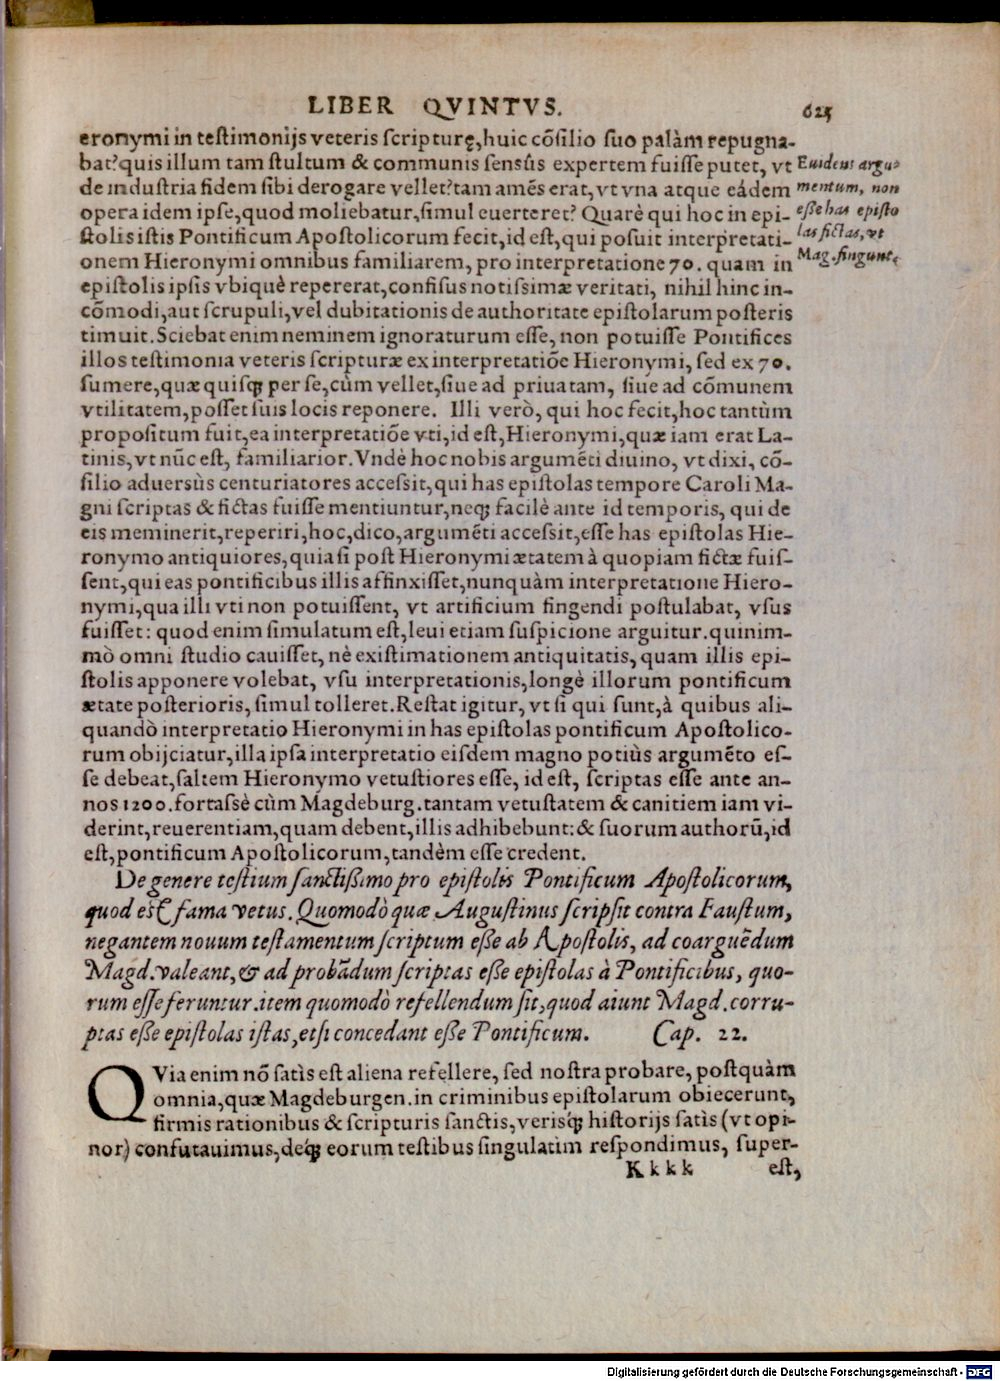 LIBER QVINTVS. 625
eronymi in teſtimonijs veteris ſcripturę, huic cõſilio ſuo palàm repugna-
bat? quis illum tam ſtultum & communis ſensûs expertem fuiſſe putet, vt
de induſtria fidem ſibi derogare vellet? tam amẽs erat, vt vna atque eádem
opera idem ipſe, quod moliebatur, ſimul euerteret? Quarè qui hoc in epi-
ſtolis iſtis Pontificum Apoſtolicorum fecit, id eſt, qui poſuit interpretati-
onem Hieronymi omnibus familiarem, pro interpretatione 70. quam in
epiſtolis ipſis vbiquè repererat, confiſus notiſsimæ veritati, nihil hinc in-
cõmodi, aut ſcrupuli, vel dubitationis de authoritate epiſtolarum poſteris
timuit. Sciebat enim neminem ignoraturum eſſe, non potuiſſe Pontifices
illos teſtimonia veteris ſcripturæ ex interpretatiõe Hieronymi, ſed ex 70.
ſumere, quæ quiſq; per ſe, cùm vellet, ſiue ad priuatam, ſiue ad cõmunem
vtilitatem, poſſet ſuis locis reponere. Illi verò, qui hoc fecit, hoc tantùm
propoſitum fuit, ea interpretatiõe vti, id eſt, Hieronymi, quæ iam erat La-
tinis, vt nũc eſt, familiarior. Vndè hoc nobis argumẽti diuino, vt dixi, cõ-
ſilio aduersùs centuriatores acceſsit, qui has epiſtolas tempore Caroli Ma-
gni ſcriptas & fictas fuiſſe mentiuntur, neq; facilè ante id temporis, qui de
eis meminerit, reperiri, hoc, dico, argumẽti acceſsit, eſſe has epiſtolas Hie-
ronymo antiquiores, quia ſi poſt Hieronymi ætatem à quopiam fictæ fuiſ-
ſent, qui eas pontificibus illis affinxiſſet, nunquàm interpretatione Hiero-
nymi, qua illi vti non potuiſſent, vt artificium fingendi poſtulabat, vſus
fuiſſet: quod enim ſimulatum eſt, leui etiam ſuſpicione arguitur. quinim-
mò omni ſtudio cauiſſet, nè exiſtimationem antiquitatis, quam illis epi-
ſtolis apponere volebat, vſu interpretationis, longè illorum pontificum
ætate poſterioris, ſimul tolleret. Reſtat igitur, vt ſi qui ſunt, à quibus ali-
quandò interpretatio Hieronymi in has epiſtolas pontificum Apoſtolico-
rum obijciatur, illa ipſa interpretatio eiſdem magno potiùs argumẽto eſ-
ſe debeat, ſaltem Hieronymo vetuſtiores eſſe, id eſt, ſcriptas eſſe ante an-
nos 1200. fortaſsè cùm Magdeburg. tantam vetuſtatem & canitiem iam vi-
derint, reuerentiam, quam debent, illis adhibebunt: & ſuorum authorũ, id
eſt, pontificum Apoſtolicorum, tandèm eſſe credent.
Euidens argu-
mentum, non
eſſe has epiſto
las fictas, vt
Mag. fingunt.
De genere teſtium ſanctiſsimo pro epiſtolis Pontificum Apoſtolicorum,
quod eſt fama vetus. Quomodò quæ Auguſtinus ſcripſit contra Fauſtum,
negantem nouum teſtamentum ſcriptum eſſe ab Apoſtolis, ad coarguẽdum
Magd. valeant, & ad probãdum ſcriptas eſſe epiſtolas à Pontificibus, quo-
rum eſſe feruntur. item quomodò refellendum ſit, quod aiunt Magd. corru-
ptas eſſe epiſtolas iſtas, etſi concedant eſſe Pontificum. Cap. 22.
QVia enim nõ ſatìs eſt aliena refellere, ſed noſtra probare, poſtquàm
omnia, quæ Magdeburgen. in criminibus epiſtolarum obiecerunt,
firmis rationibus & ſcripturis ſanctis, verisq́; hiſtorijs ſatìs (vt opi-
nor) confutauimus, deq́; eorum teſtibus ſingulatìm reſpondimus, ſuper-
Kkkk eſt,
Digitalisierung gefördert durch die Deutsche Forschungsgemeinschaft - DFG